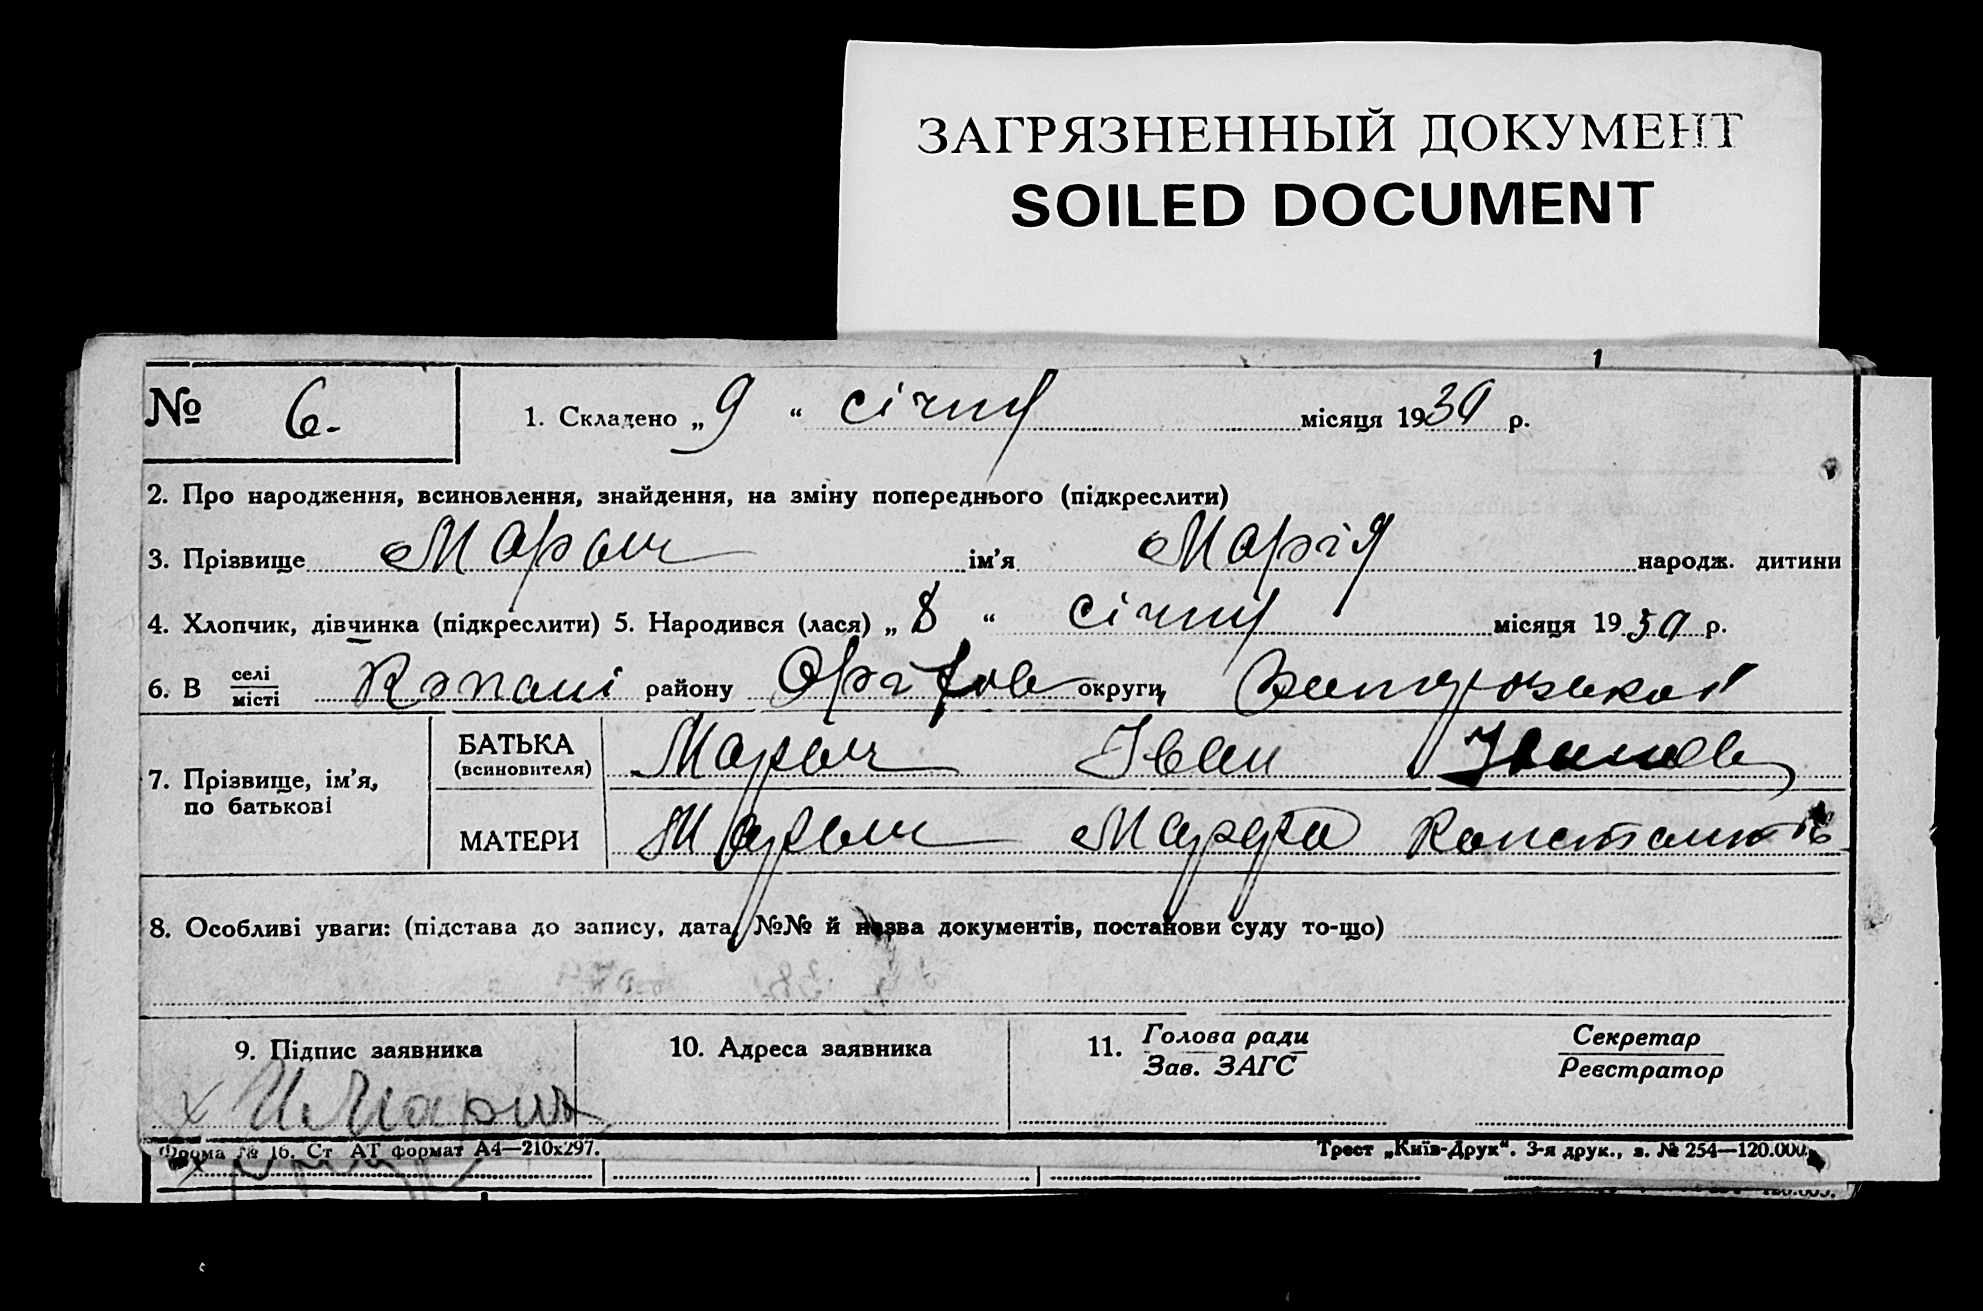 ЗАГРЯЗНЕННЫЙ ДОКУМЕНТ
SOILED DOCUMENT
1
№ 6.- 1. Складено „9“ січня місяця 1930 р.
2. Про народження, всиновлення, знайдення, на зміну попереднього (підкреслити)
3. Прізвище ім'я Марія народж. дитини
4. Хлопчик, дівчинка (підкреслити) 5. Народився (лася) „8“ січня місяця 1930 р.
6. В селі/місті Копані району Оріхов округи
7. Прізвище, ім'я, по батькові
БАТЬКА (всиновителя) Іван Іванов
МАТЕРИ Марфа Константів
8. Особливі уваги: (підстава до запису, дата, №№ й назва документів, постанови суду то-що)
9. Підпис заявника 10. Адреса заявника 11. Голова ради Секретар
Зав. ЗАГС Реєстратор
Форма № 16. Ст АТ формат А4—210х297. Трест „Київ-Друк“. 3-я друк., з. № 254—120.000.